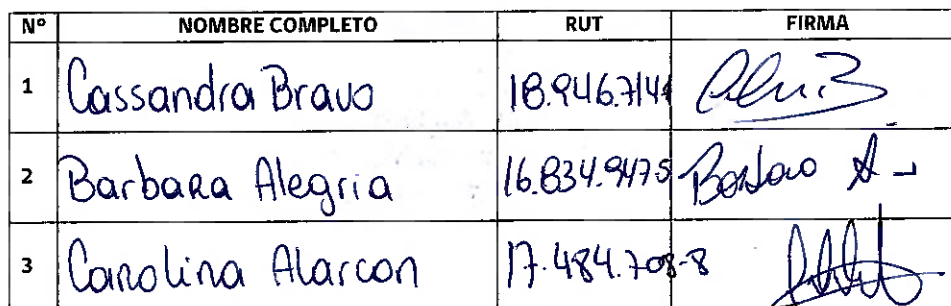 N° NOMBRE COMPLETO RUT FIRMA
1 Cassandra Bravo 18.946.714-1
2 Barbara Alegria 16.834.947-5
3 Carolina Alarcon 17.484.708-8